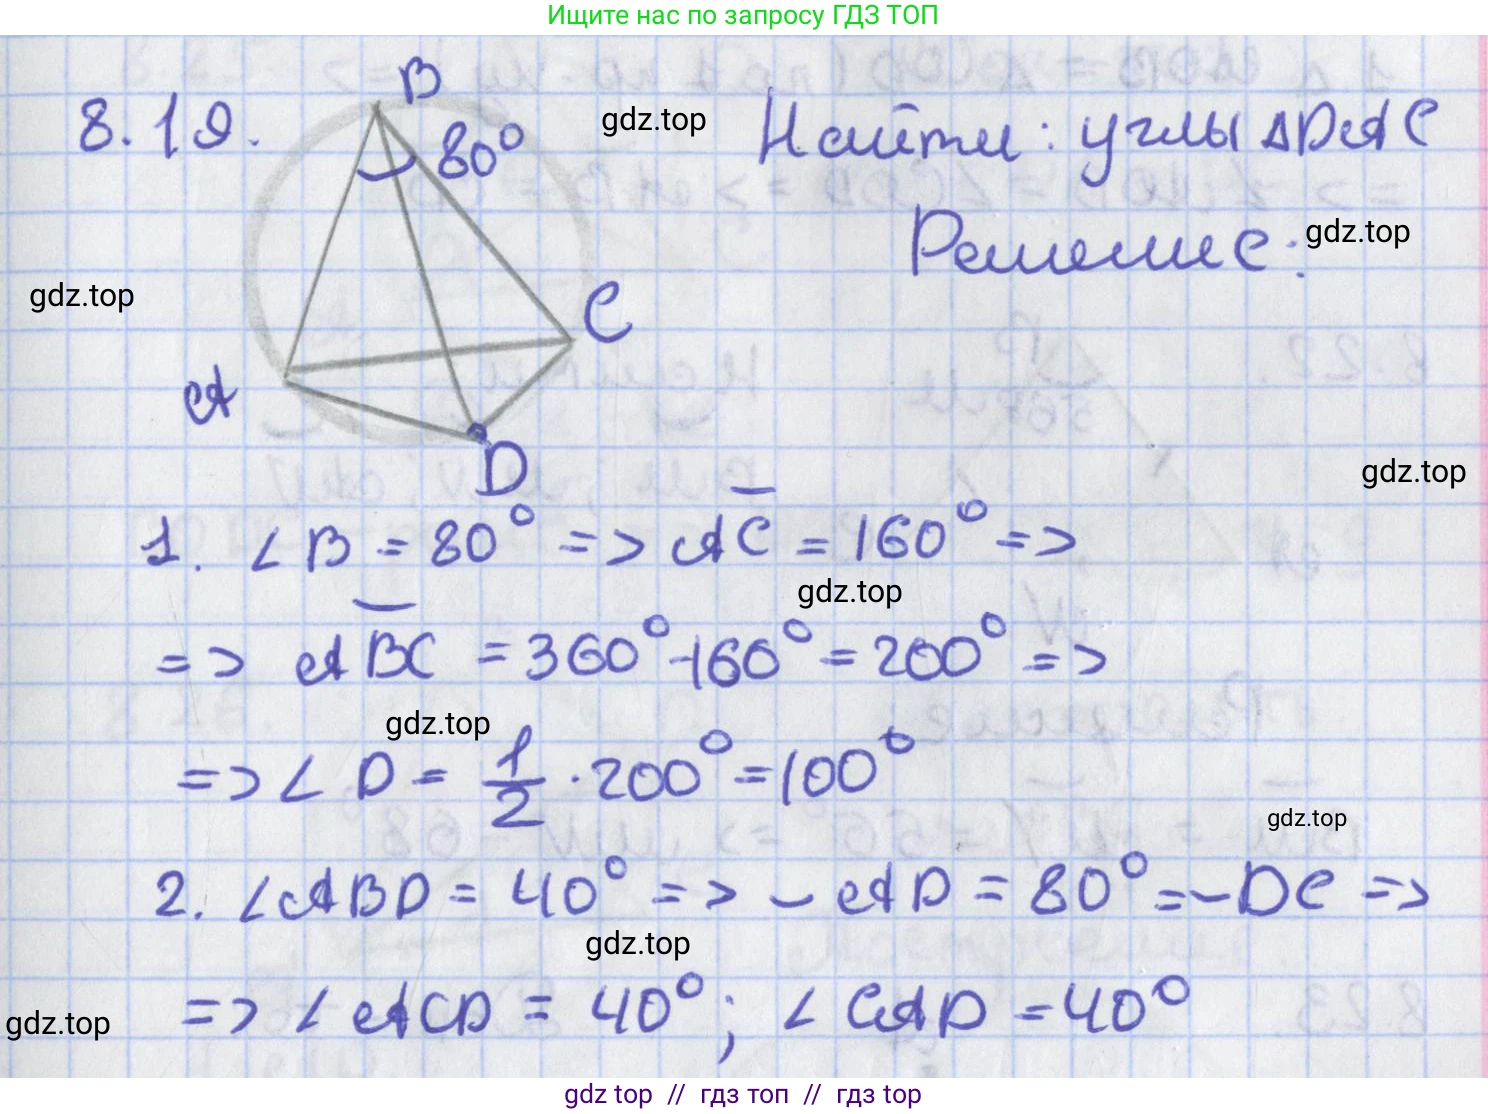 Ищите нас по запросу ГДЗ ТОП
8.19.
B
80°
gdz.top
Найти: углы ΔDAC
Решение:
gdz.top
gdz.top
C
A
D
gdz.top
1. ∠B = 80° => ◡AC = 160° =>
gdz.top
=> ◡ABC = 360° - 160° = 200° =>
gdz.top
=> ∠D = 1/2 · 200° = 100°
gdz.top
2. ∠ABD = 40° => ◡AD = 80° = ◡DC =>
gdz.top
=> ∠ACD = 40°; ∠CAD = 40°
gdz.top
gdz top // гдз топ // гдз top